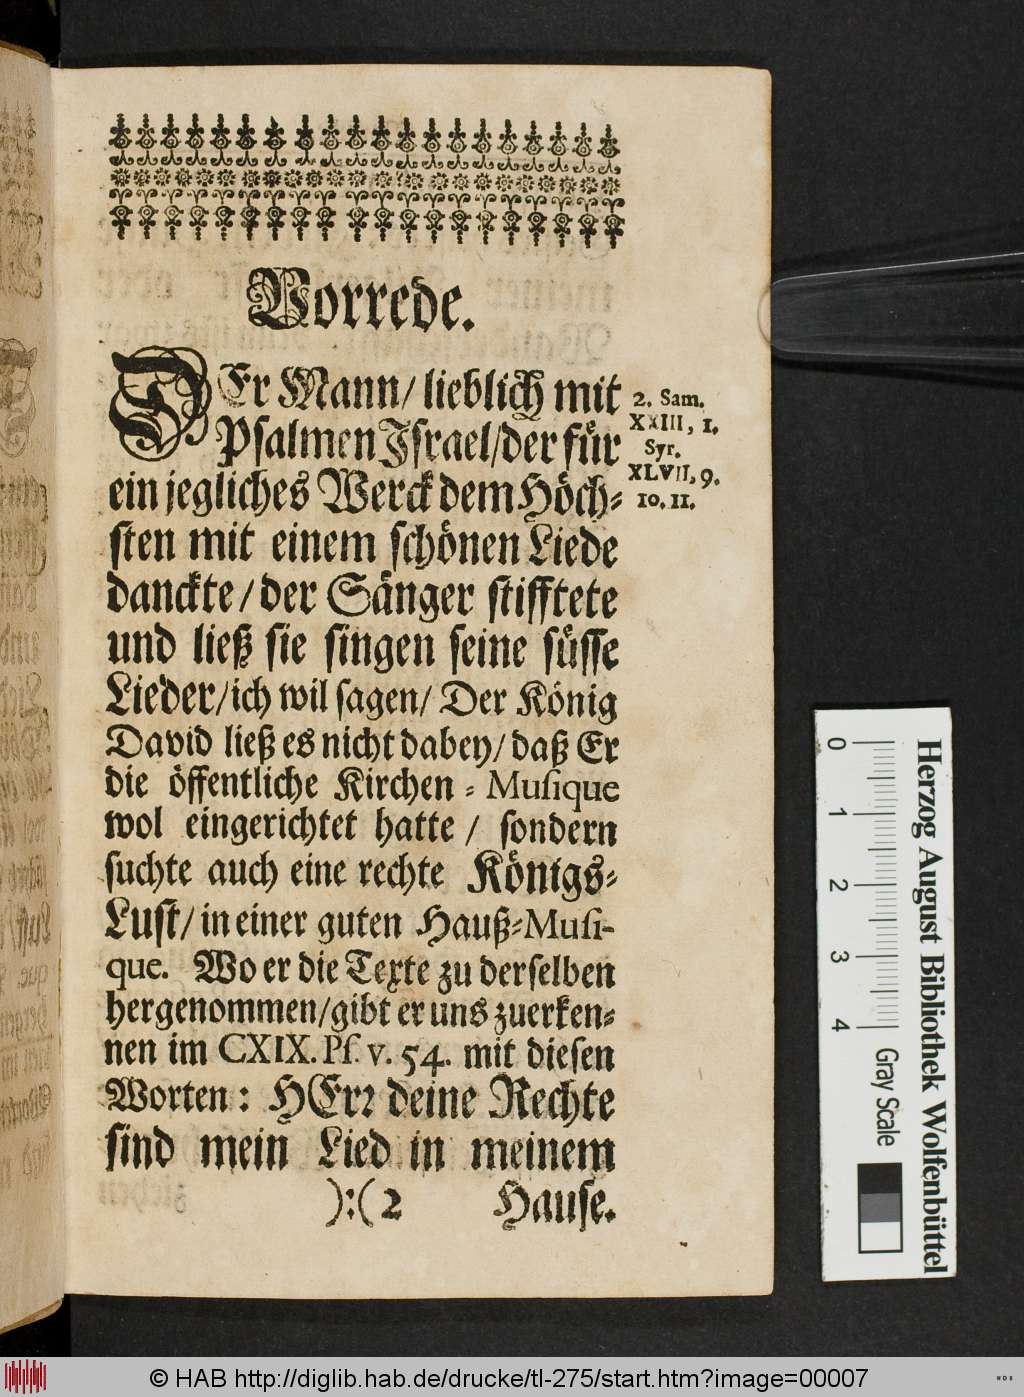 Vorrede.
DEr Mann/ lieblich mit
Psalmen Israel/der für
ein jegliches Werck dem Höch-
sten mit einem schönen Liede
danckte/der Sänger stifftete
und ließ sie singen seine süsse
Lieder/ich wil sagen/ Der König
David ließ es nicht dabey/daß Er
die öffentliche Kirchen-Musique
wol eingerichtet hatte / sondern
suchte auch eine rechte Königs-
Lust/in einer guten Hauß-Musi-
que. Wo er die Texte zu derselben
hergenommen/gibt er uns zuerken-
nen im CXIX. Ps. v. 54. mit diesen
Worten: HErr deine Rechte
sind mein Lied in meinem
):( 2 Hause.
2. Sam.
XXIII, 1.
Syr.
XLVII, 9.
10. 11.
0 1 2 3 4
Herzog August Bibliothek Wolfenbüttel
Gray Scale
© HAB http://diglib.hab.de/drucke/tl-275/start.htm?image=00007